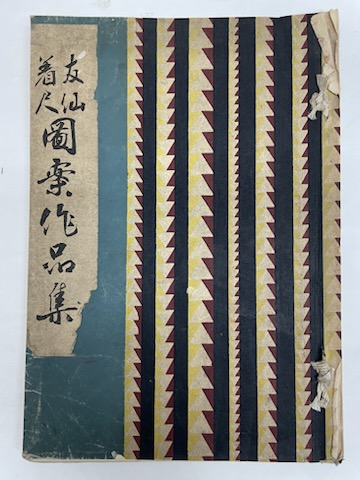 友仙
着尺
圖案作品集